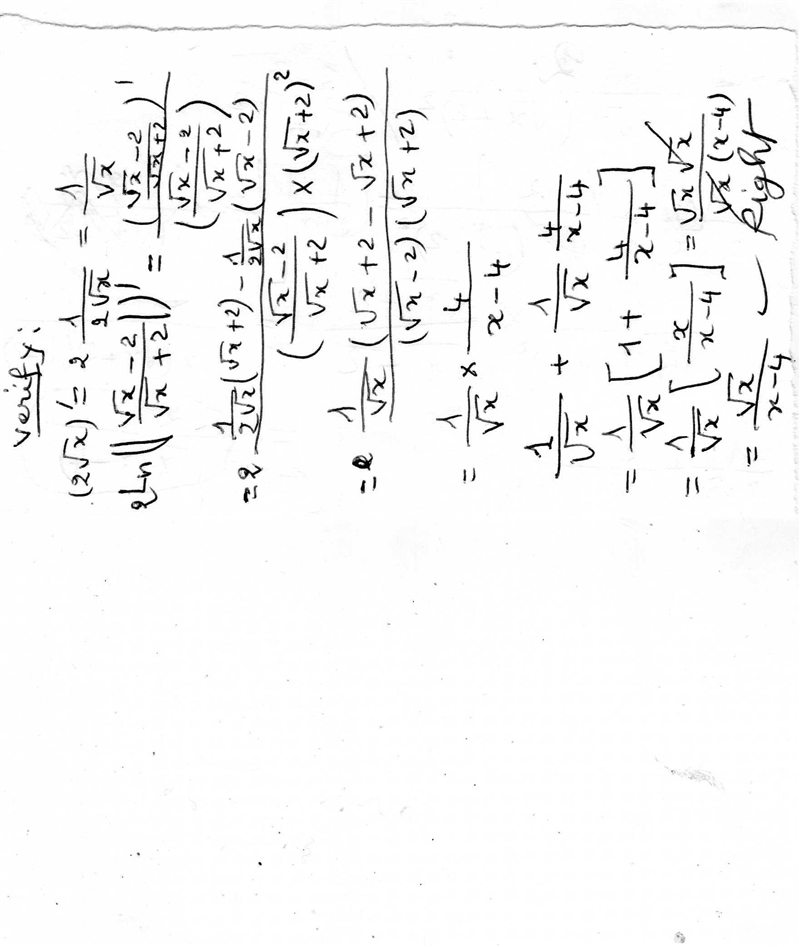 verify:
(2√x)' = 2 1/(2√x) = 1/√x
2Ln(|(√x-2)/(√x+2)|)' = ((√x-2)/(√x+2))' / ((√x-2)/(√x+2))
=2 (1/(2√x)(√x+2) - 1/(2√x)(√x-2)) / (((√x-2)/(√x+2)) × (√x+2)²)
=2 1/√x (√x+2 - √x+2) / ((√x-2)(√x+2))
= 1/√x × 4/(x-4)
1/√x + 1/√x 4/(x-4)
= 1/√x [1 + 4/(x-4)]
= 1/√x [x/(x-4)] = √x √x / (√x (x-4))
= √x/(x-4) Right